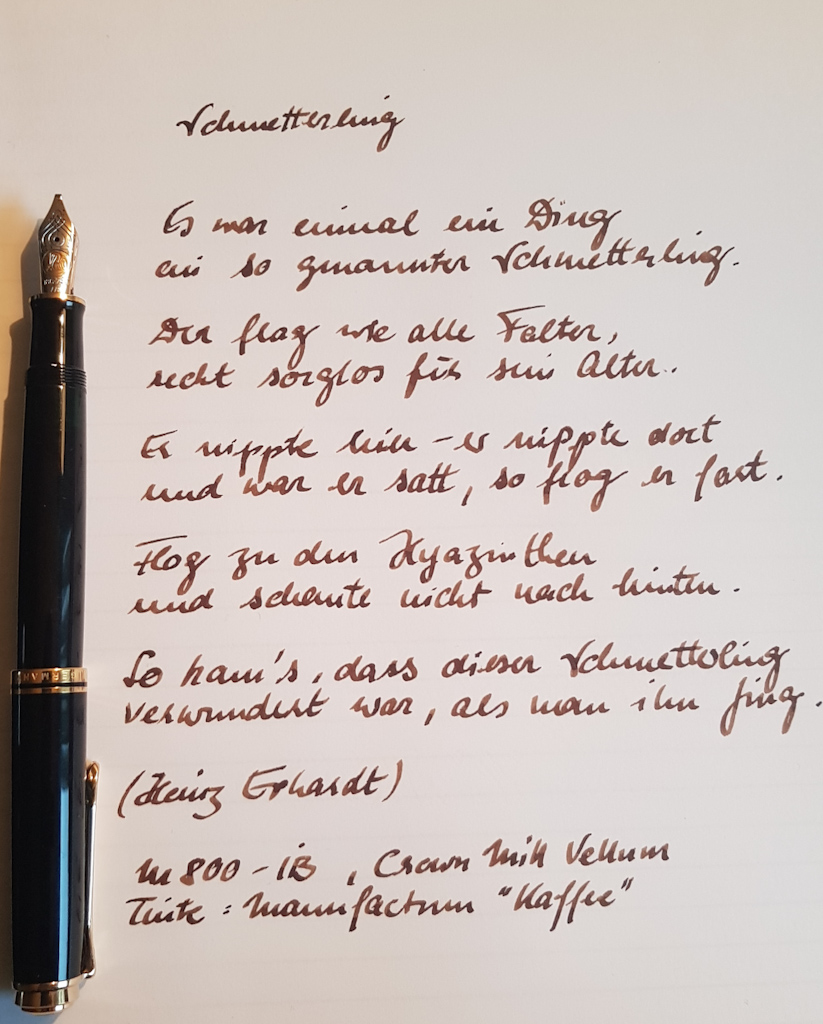 Schmetterling
Es war einmal ein Ding
ein so genannter Schmetterling.
Der flog wie alle Falter,
recht sorglos für sein Alter.
Er nippte hier – er nippte dort
und war er satt, so flog er fort.
Flog zu den Hyazinthen
und schaute nicht nach hinten.
So kam's, dass dieser Schmetterling
verwundert war, als man ihn fing.
(Heinz Erhardt)
M800 - IB, Crown Mill Vellum
Tinte: Manufactum "Kaffee"